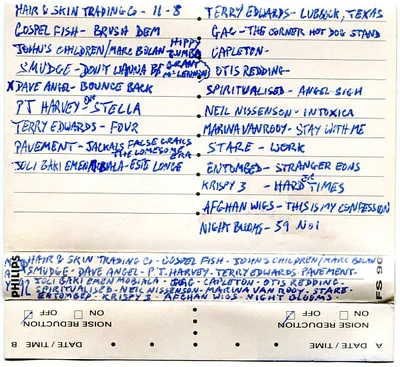 HAIR & SKIN TRADING CO - 11-8
GOSPEL FISH - BRUSH DEM
JOHN'S CHILDREN/MARC BOLAN HIPPY GUMBO
SMUDGE - DON'T WANNA BE GRANT McLENNAN
X DAVE ANGEL - BOUNCE BACK
PJ HARVEY - STELLA
TERRY EDWARDS - FOUR
PAVEMENT - JACKALS FALSE GRAILS THE LONESOME ERA
JOLI BAKI EMEN - ESTE LONGE
TERRY EDWARDS - LUBBOCK, TEXAS
GAG - THE CORNER HOT DOG STAND
CAPLETON -
OTIS REDDING -
SPIRITUALISED - ANGEL SIGH
NEIL NISSENSON - INTOXICA
MARINA VAN ROOY - STAY WITH ME
STARE - WORK
ENTOMBED - STRANGER EONS
KRISPY 3 - HARD TIMES
AFGHAN WIGS - THIS IS MY CONFESSION
NIGHT BLOOMS - 59 NO1
PHILIPS
HAIR & SKIN TRADING CO - GOSPEL FISH - JOHN'S CHILDREN/MARC BOLAN
SMUDGE - DAVE ANGEL - P.J. HARVEY - TERRY EDWARDS - PAVEMENT -
JOLI BAKI EMEN MOBIALA - GAG - CAPLETON - OTIS REDDING -
SPIRITUALISED - NEIL NISSENSON - MARINA VAN ROOY - STARE -
ENTOMBED - KRISPY 3 - AFGHAN WIGS - NIGHT BLOOMS -
FS 90
A DATE / TIME
NOISE REDUCTION
ON
OFF
B DATE / TIME
NOISE REDUCTION
ON
OFF